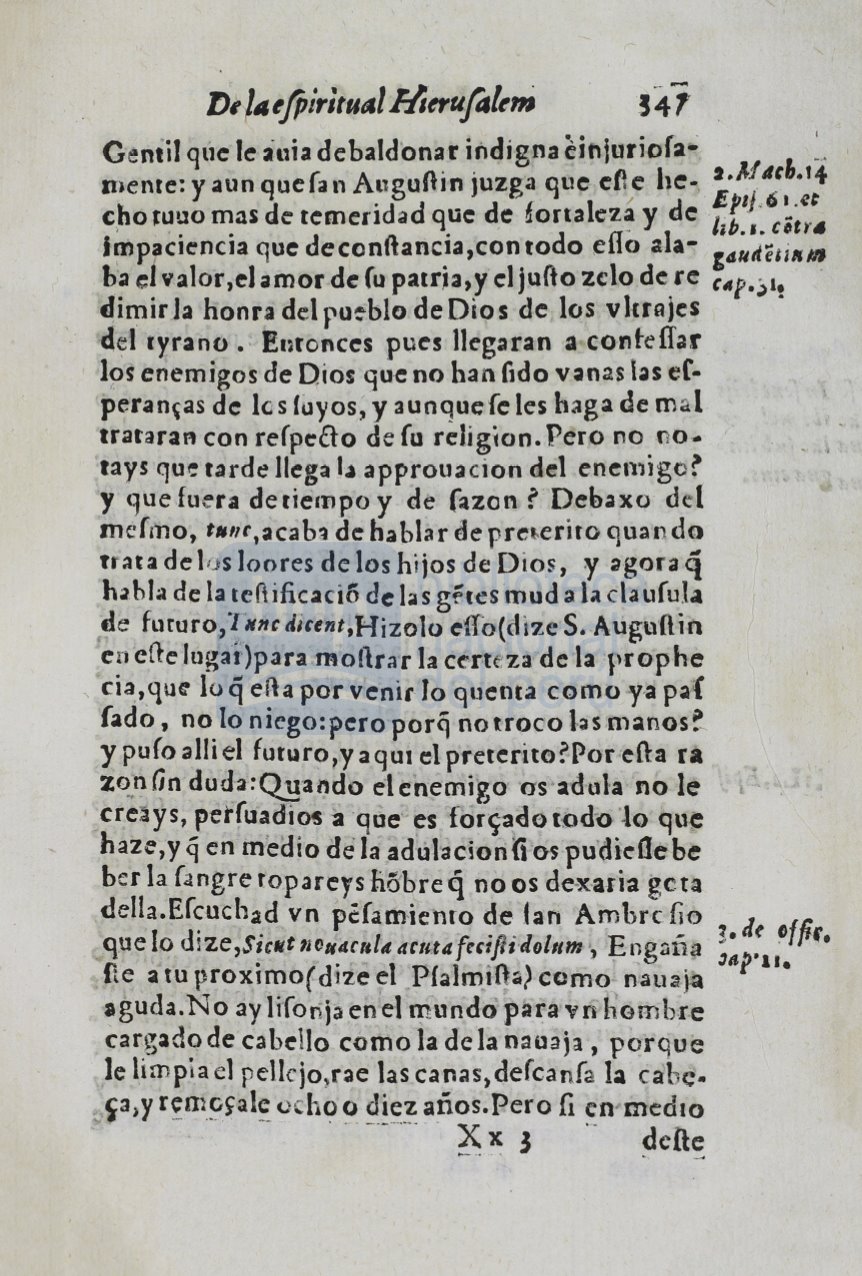 De la eſpiritual Hieruſalem 347
Gentil que le auia de baldonar indigna è injurioſa-
mente: y aun que ſan Auguſtin juzga que eſte he-
cho tuuo mas de temeridad que de fortaleza y de
impaciencia que de conſtancia, con todo eſſo ala-
ba el valor, el amor de ſu patria, y el juſto zelo de re
dimir la honra del pueblo de Dios de los vltrajes
del tyrano. Entonces pues llegaran a confeſſar
los enemigos de Dios que no han ſido vanas las eſ-
peranças de los ſuyos, y aunque ſe les haga de mal
trataran con reſpecto de ſu religion. Pero no no-
tays que tarde llega la approuacion del enemigo?
y que fuera de tiempo y de ſazon? Debaxo del
meſmo, tunc, acaba de hablar de preterito quando
trata de los loores de los hijos de Dios, y agora q̃
habla de la teſtificaciõ de las gẽtes muda la clauſula
de futuro, Tunc dicent, Hizolo eſſo (dize S. Auguſtin
en eſte lugar) para moſtrar la certeza de la prophe
cia, que lo q̃ eſta por venir lo quenta como ya paſ
ſado, no lo niego: pero porq̃ no troco las manos?
y puſo alli el futuro, y aqui el preterito? Por eſta ra
zon ſin duda: Quando el enemigo os adula no le
creays, perſuadios a que es forçado todo lo que
haze, y q̃ en medio de la adulacion ſi os pudieſſe be
ber la ſangre topareys hõbre q̃ no os dexaria gota
della. Eſcuchad vn pẽſamiento de ſan Ambroſio
que lo dize, Sicut nouacula acuta feciſti dolum, Engaña
ſte a tu proximo (dize el Pſalmiſta) como nauaja
aguda. No ay liſonja en el mundo para vn hombre
cargado de cabello como la de la nauaja, porque
le limpia el pellejo, rae las canas, deſcanſa la cabe-
ça, y remoçale ocho o diez años. Pero ſi en medio
Xx 3 deſte
2. Mach. 14
Epiſ. 61. et
lib. 1. cõtra
gaudẽtium
cap. 31.
3. de offic.
cap. 11.